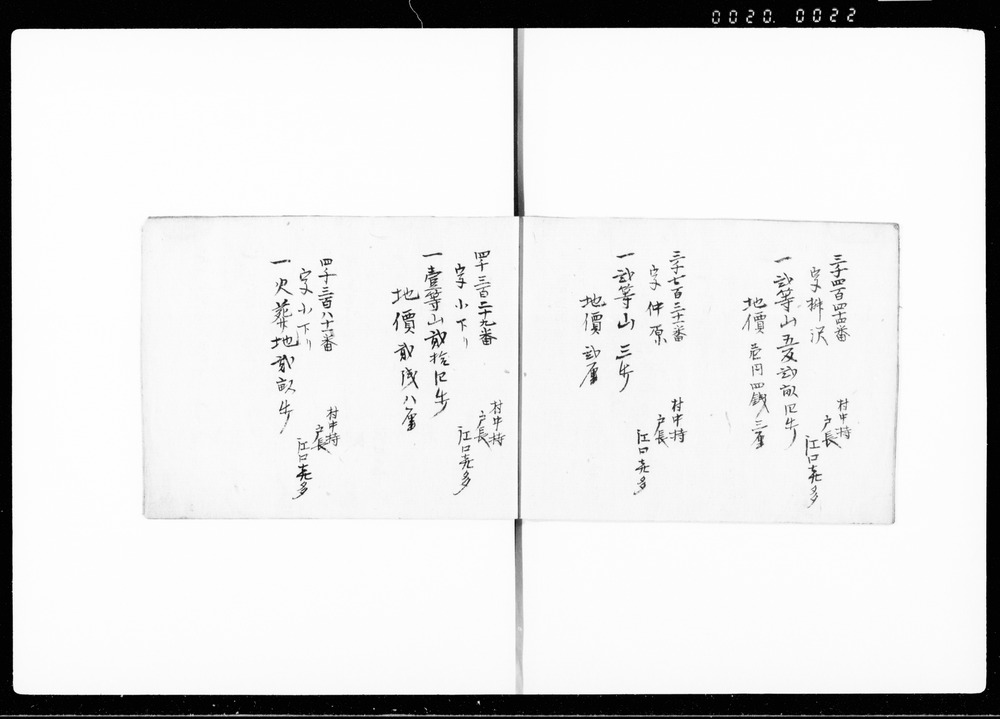 0020. 0022
三千四百四十四番
字栁沢
一弐等山五反弐畝四歩
地價壱円四銭三厘
村中持
戸長
江口壳多
三千七百三十二番
字仲原
一弐等山三歩
地價弐厘
村中持
戸長
江口壳多
四千三百二十九番
字小下り
一壹等山貮拾四歩
地價貮銭八厘
村中持
戸長
江口壳多
四千三百八十一番
字小下り
一火葬地貮畝歩
村中持
戸長
江口壳多